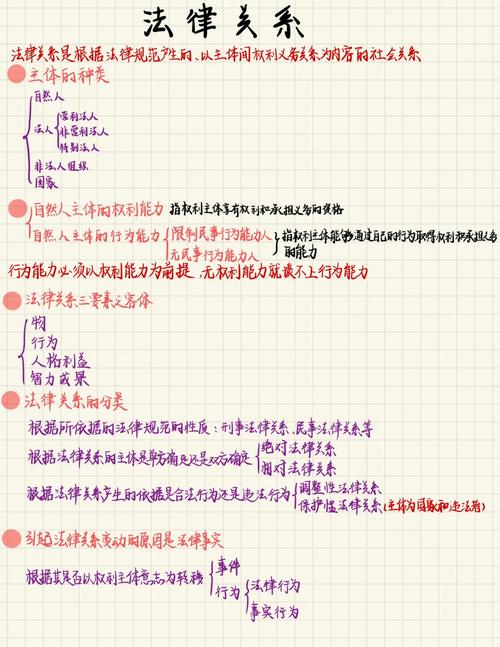 法律关系
法律关系是根据法律规范产生的、以主体间权利义务关系为内容的社会关系
主体的种类
自然人
法人
营利法人
非营利法人
特别法人
非法人组织
国家
自然人主体的权利能力 指权利主体享有权利和承担义务的资格
自然人主体的行为能力
限制民事行为能力人
无民事行为能力人
指权利主体能够通过自己的行为取得权利和承担义务
的能力
行为能力必须以权利能力为前提，无权利能力就谈不上行为能力
法律关系三要素之客体
物
行为
人格利益
智力成果
法律关系的分类
根据所依据的法律规范的性质：刑事法律关系、民事法律关系等
根据法律关系的主体是单方确定还是双方确定
绝对法律关系
相对法律关系
根据法律关系产生的依据是合法行为还是违法行为
调整性法律关系
保护性法律关系(主体为国家和违法者)
引起法律关系变动的原因是法律事实
根据其是否以权利主体意志为转移
事件
行为
法律行为
事实行为